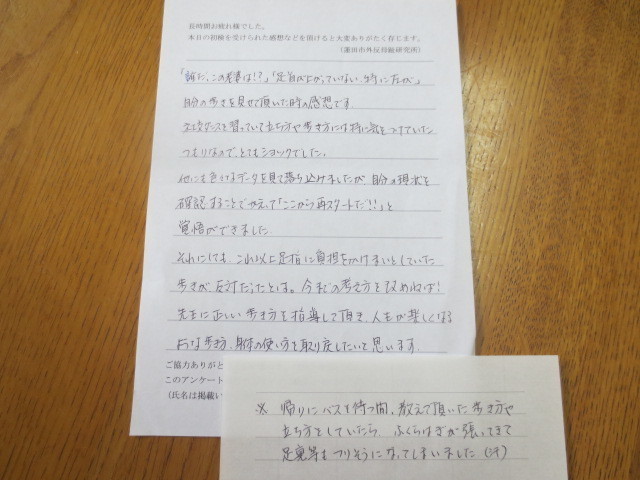 長時間お疲れ様でした。
本日の初検を受けられた感想などを頂けると大変ありがたく存じます。
(蓮田市外反母趾研究所)
「誰だ、この老婆は!?」「足首が上がっていない、特に左が」
自分の歩きを見せて頂いた時の感想です。
ダンスを習っていて立ち方や歩き方には特に気をつけていた
つもりなので、とてもショックでした。
他にも色々なデータを見て落ち込みましたが、自分の現状を
確認することでかえって「ここから再スタートだ!!」と
覚悟ができました。
それにしても、これ以上足指に負担をかけまいとしていた
歩きが反対だったとは。今までの考え方を改めねば!
先生に正しい歩き方を指導して頂き、人生が楽しくなる
ような歩き方、身体の使い方を取り戻したいて思います。
ご協力ありがと
このアンケート
(氏名は掲載い
※ 帰りにバスを待つ間、教えて頂いた歩き方や
立ち方をしていたら、ふくらはぎが張ってきて
足裏等もつりそうになってしまいました(汗)